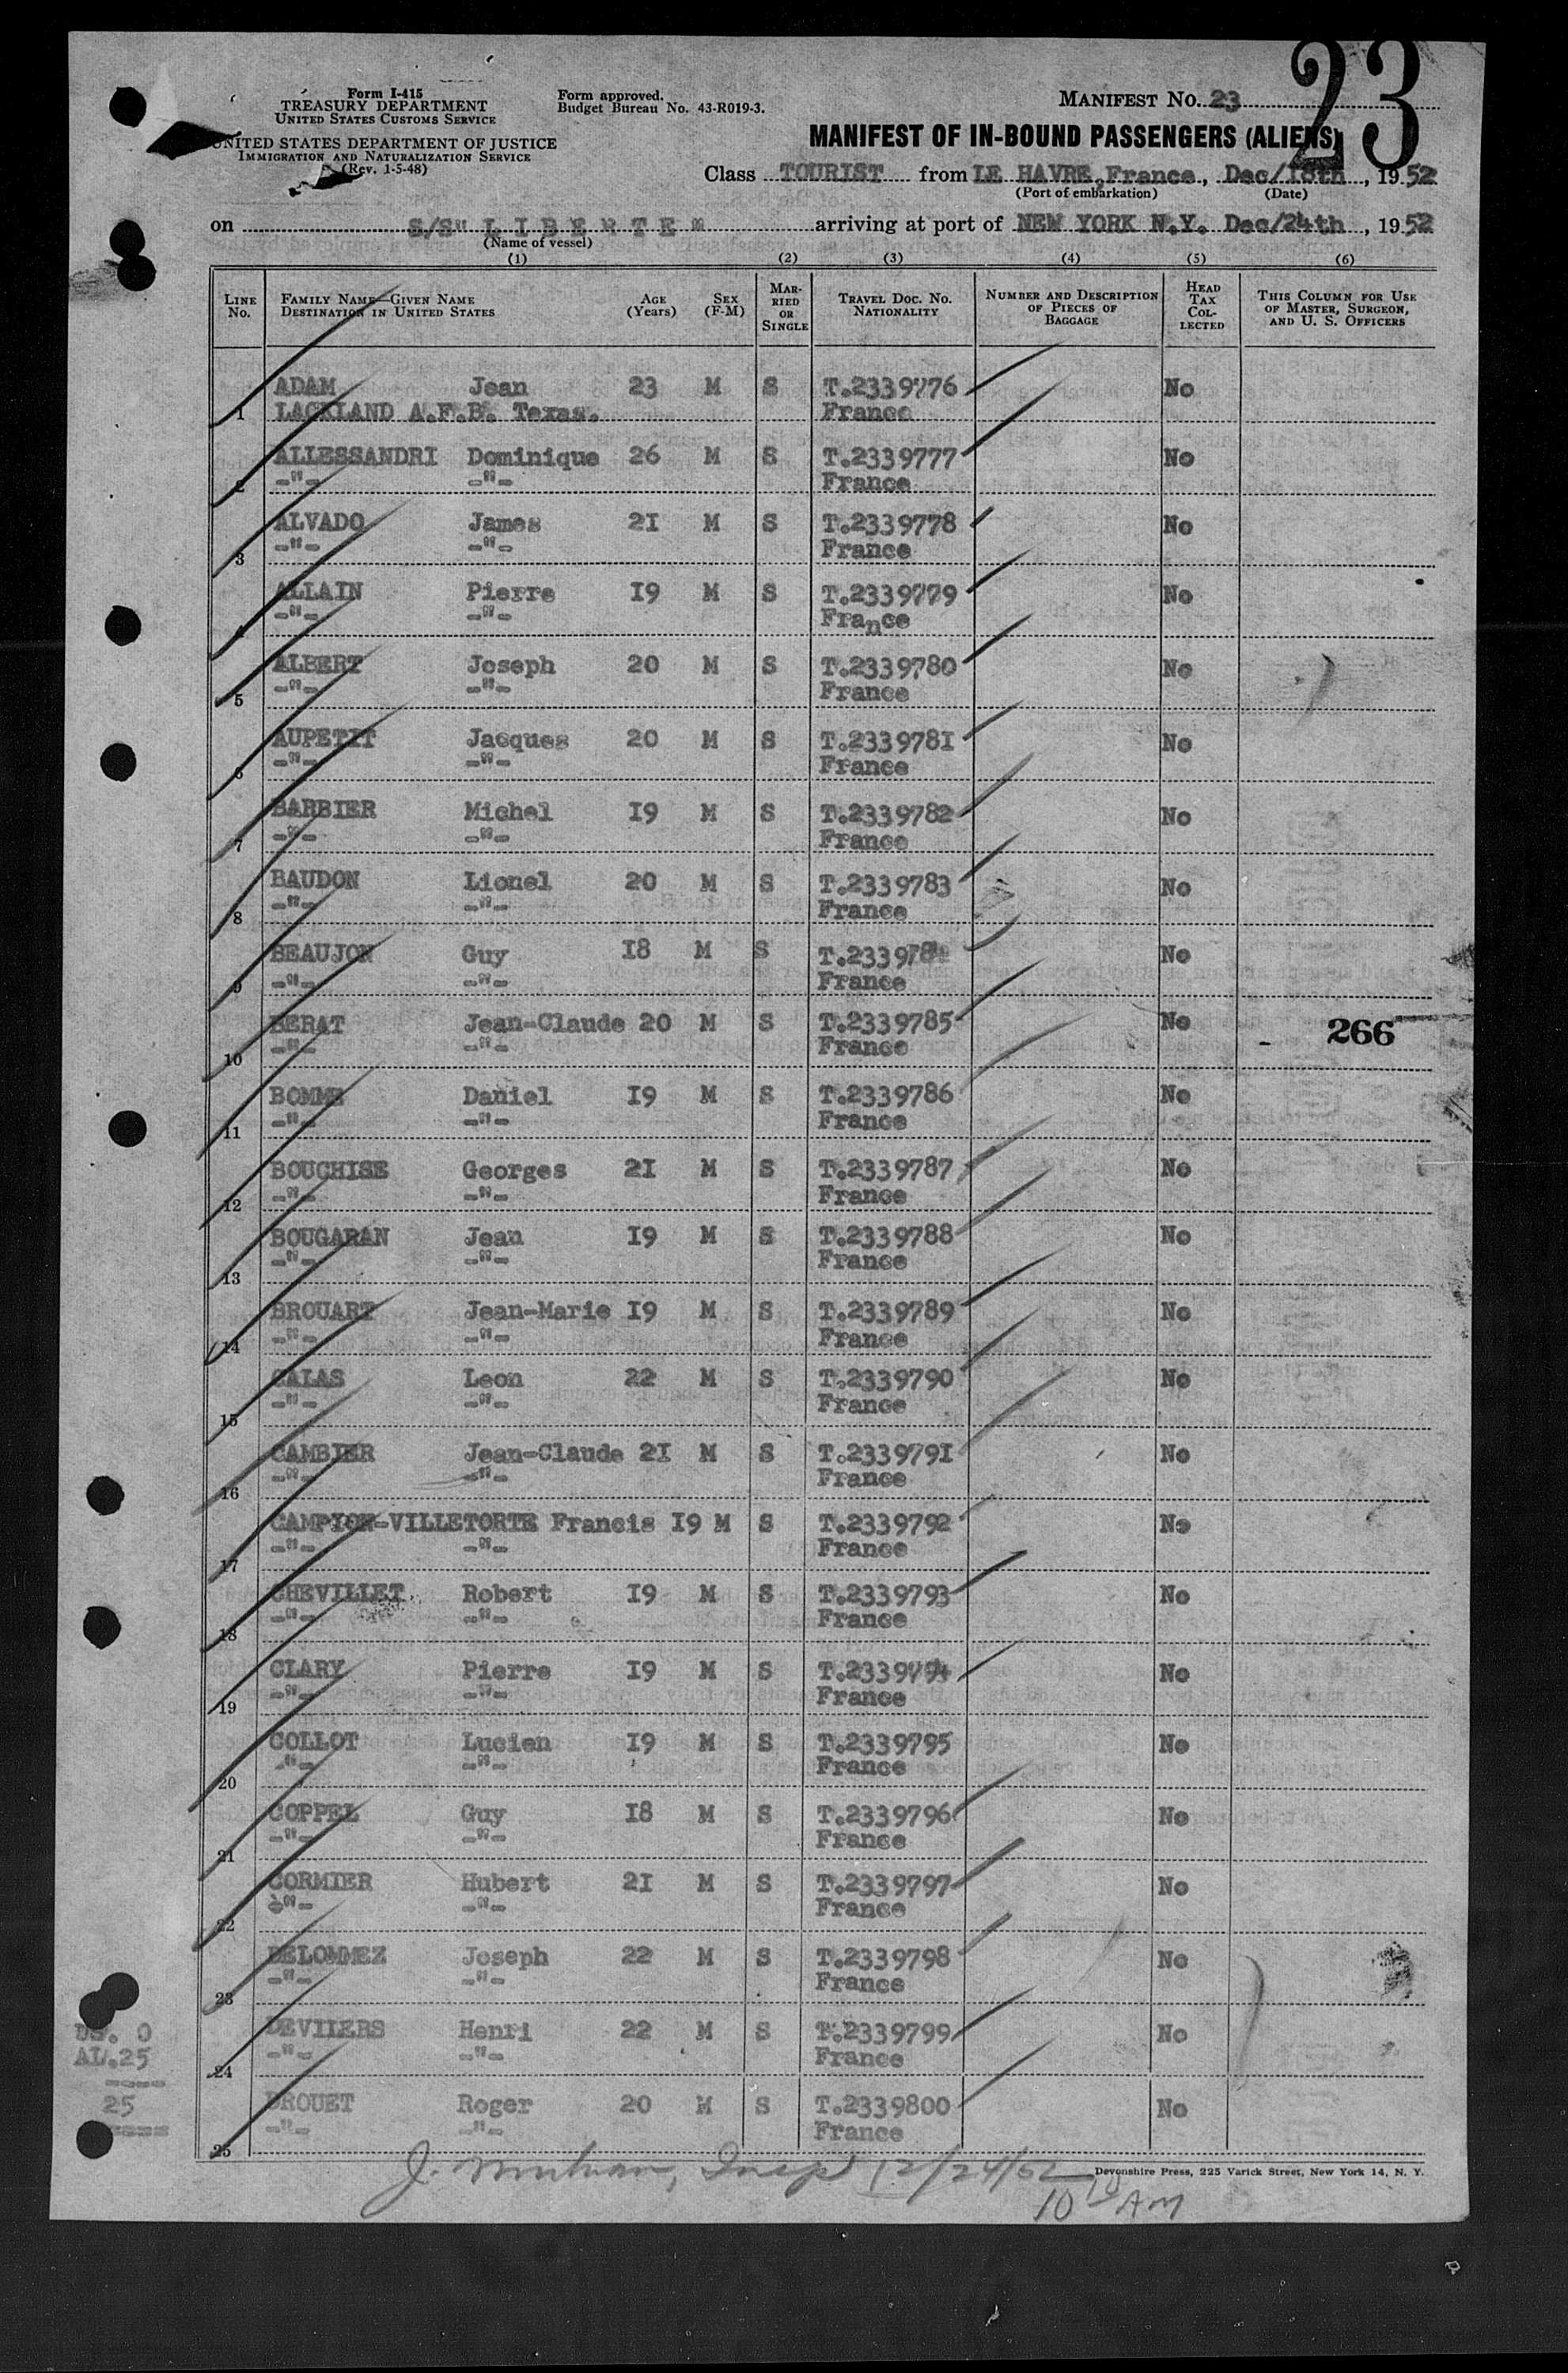 23
Form I-415
TREASURY DEPARTMENT
UNITED STATES CUSTOMS SERVICE
UNITED STATES DEPARTMENT OF JUSTICE
IMMIGRATION AND NATURALIZATION SERVICE
(Rev. 1-5-48)
Form approved.
Budget Bureau No. 43-R019-3.
MANIFEST No. 23
MANIFEST OF IN-BOUND PASSENGERS (ALIENS)
Class TOURIST from LE HAVRE, France, Dec/18th, 1952
(Port of embarkation) (Date)
on S/S" L I B E R T E " arriving at port of NEW YORK N.Y. Dec/24th, 1952
(Name of vessel)
(1) (2) (3) (4) (5) (6)
LINE No. FAMILY NAME—GIVEN NAME DESTINATION IN UNITED STATES AGE (Years) SEX (F-M) MARRIED OR SINGLE TRAVEL DOC. NO. NATIONALITY NUMBER AND DESCRIPTION OF PIECES OF BAGGAGE HEAD TAX COLLECTED THIS COLUMN FOR USE OF MASTER, SURGEON, AND U. S. OFFICERS
ADAM Jean 23 M S T.2339776 No
1 LACKLAND A.F.B. Texas. France
ALLESSANDRI Dominique 26 M S T.2339777 No
2 -"- -"- France
ALVADO James 21 M S T.2339778 No
3 -"- -"- France
ALLAIN Pierre 19 M S T.2339779 No
4 -"- -"- France
ALBERT Joseph 20 M S T.2339780 No
5 -"- -"- France
AUPETIT Jacques 20 M S T.2339781 No
6 -"- -"- France
BARBIER Michel 19 M S T.2339782 No
7 -"- -"- France
BAUDON Lionel 20 M S T.2339783 No
8 -"- -"- France
BEAUJON Guy 18 M S T.2339784 No
9 -"- -"- France
BERAT Jean-Claude 20 M S T.2339785 No
10 -"- -"- France - 266
BOMME Daniel 19 M S T.2339786 No
11 -"- -"- France
BOUCHISE Georges 21 M S T.2339787 No
12 -"- -"- France
BOUGARAN Jean 19 M S T.2339788 No
13 -"- -"- France
BROUART Jean-Marie 19 M S T.2339789 No
14 -"- -"- France
CALAS Leon 22 M S T.2339790 No
15 -"- -"- France
CAMBIER Jean-Claude 21 M S T.2339791 No
16 -"- -"- France
CAMPION-VILLETORTE Francis 19 M S T.2339792 No
17 -"- -"- France
CHEVILLET Robert 19 M S T.2339793 No
18 -"- -"- France
CLARY Pierre 19 M S T.2339794 No
19 -"- -"- France
COLLOT Lucien 19 M S T.2339795 No
20 -"- -"- France
COPPEL Guy 18 M S T.2339796 No
21 -"- -"- France
CORMIER Hubert 21 M S T.2339797 No
22 -"- -"- France
DELOMMEZ Joseph 22 M S T.2339798 No
23 -"- -"- France
DEVIIERS Henri 22 M S T.2339799 No
24 -"- -"- France
DROUET Roger 20 M S T.2339800 No
25 -"- -"- France
US. 0
AL.25
25
J. Insp 12/24/52
10 10 AM
Devonshire Press, 225 Varick Street, New York 14, N. Y.